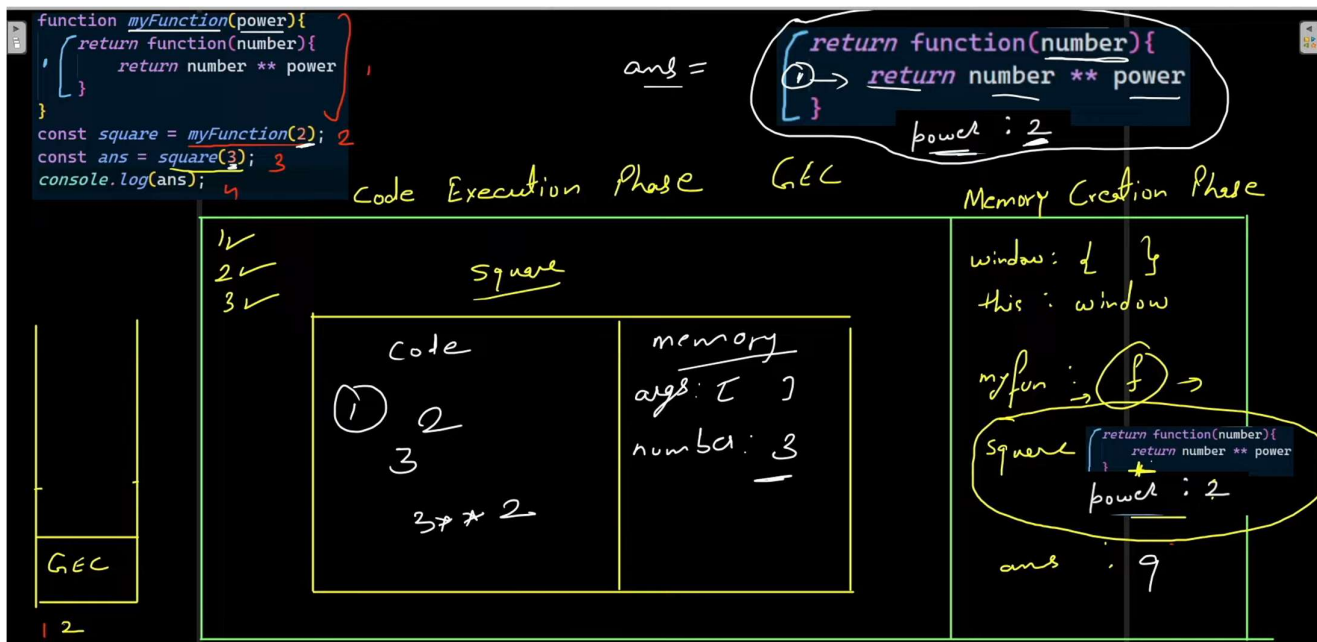 function myFunction(power){
return function(number){
return number ** power
}
}
const square = myFunction(2);
const ans = square(3);
console.log(ans);
1
2
3
4
ans =
return function(number){
1 → return number ** power
}
power : 2
Code Execution Phase GEC Memory Creation Phase
1 ✓
2 ✓
3 ✓
square
code
1 2
3
3 ** 2
memory
args: [ ]
number: 3
window: { }
this : window
myfun : → f →
square
return function(number){
return number ** power
}
power : 2
ans : 9
GEC
1 2